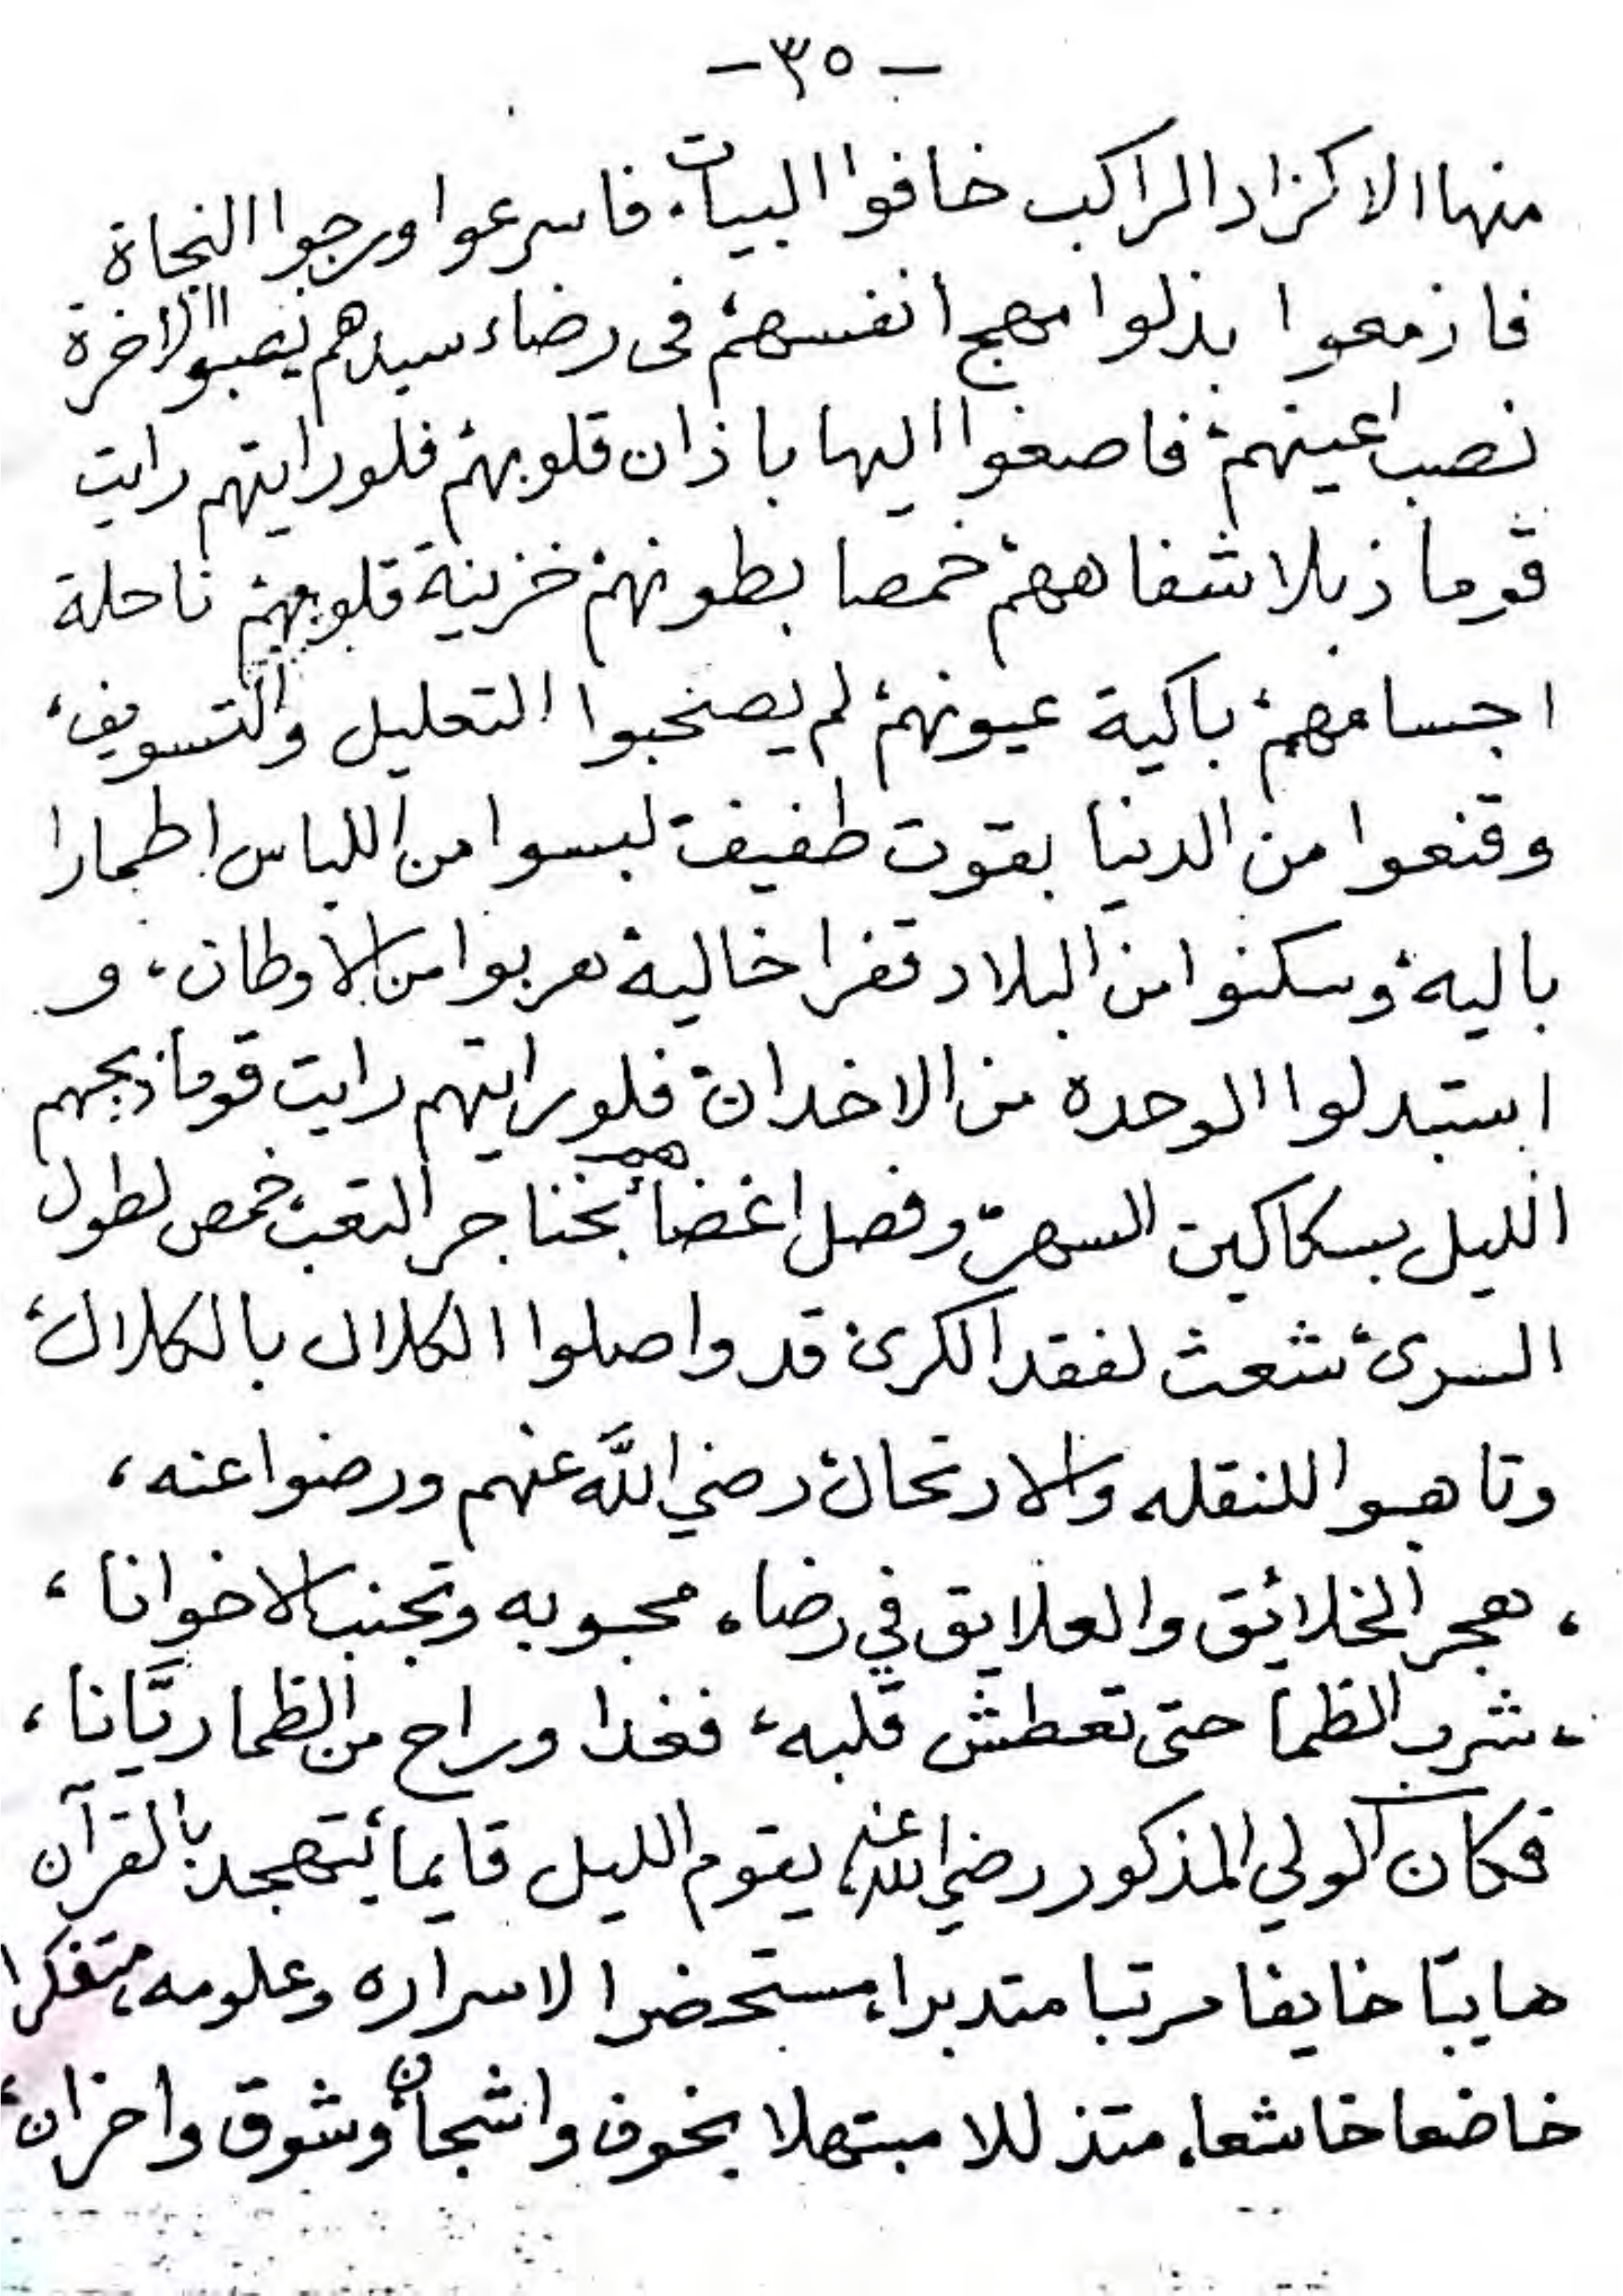 -٣٥-
منها الا كزاد الراكب خافوا البيات، فاسرعوا ورجوا النجاة
فازمعوا بذلوا مهج انفسهم في رضاء سيدهم نصبوا الاخرة
نصب اعينهم، فاصغوا اليها باذان قلوبهم فلورايتهم رايت
قوما ذبلا شفاههم خمصا بطونهم خزينة قلوبهم ناحلة
اجسامهم، باكية عيونهم، لم يصحبوا التعليل والتسويف،
وقنعوا من الدنيا بقوت طفيف لبسوا من اللباس اطمارا
باليه، وسكنوا من البلاد قفرا خالية هربوا من الاوطان، و
استبدلوا الوحده من الاخدان فلورايتهم رايت قوما ذبحهم
الليل بسكاكين السهر، وفصل اغضائهم بخناجر التعب، خمص لطول
السرى، شعث لفقد الكرى قد واصلوا الكلال بالكلال،
وتاهبوا للنقله والارتحال، رضي الله عنهم ورضوا عنه،
، هجر الخلائق والعلايق في رضاء محبوبه وتجنب الاخوانا،
، شرب الظما حتى تعطش قلبه، فغدا وراح من الظما ريَّانا،
فكان الولي المذكور رضي الله عنه، يقوم الليل قايما يتهجد بالقرآن
هايبا خايفا مرتبا متدبرا، مستحضرا لاسراره وعلومه، متفكرا
خاضعا خاشعا، متذللا مبتهلا بخوف واشجان وشوق واحزان،